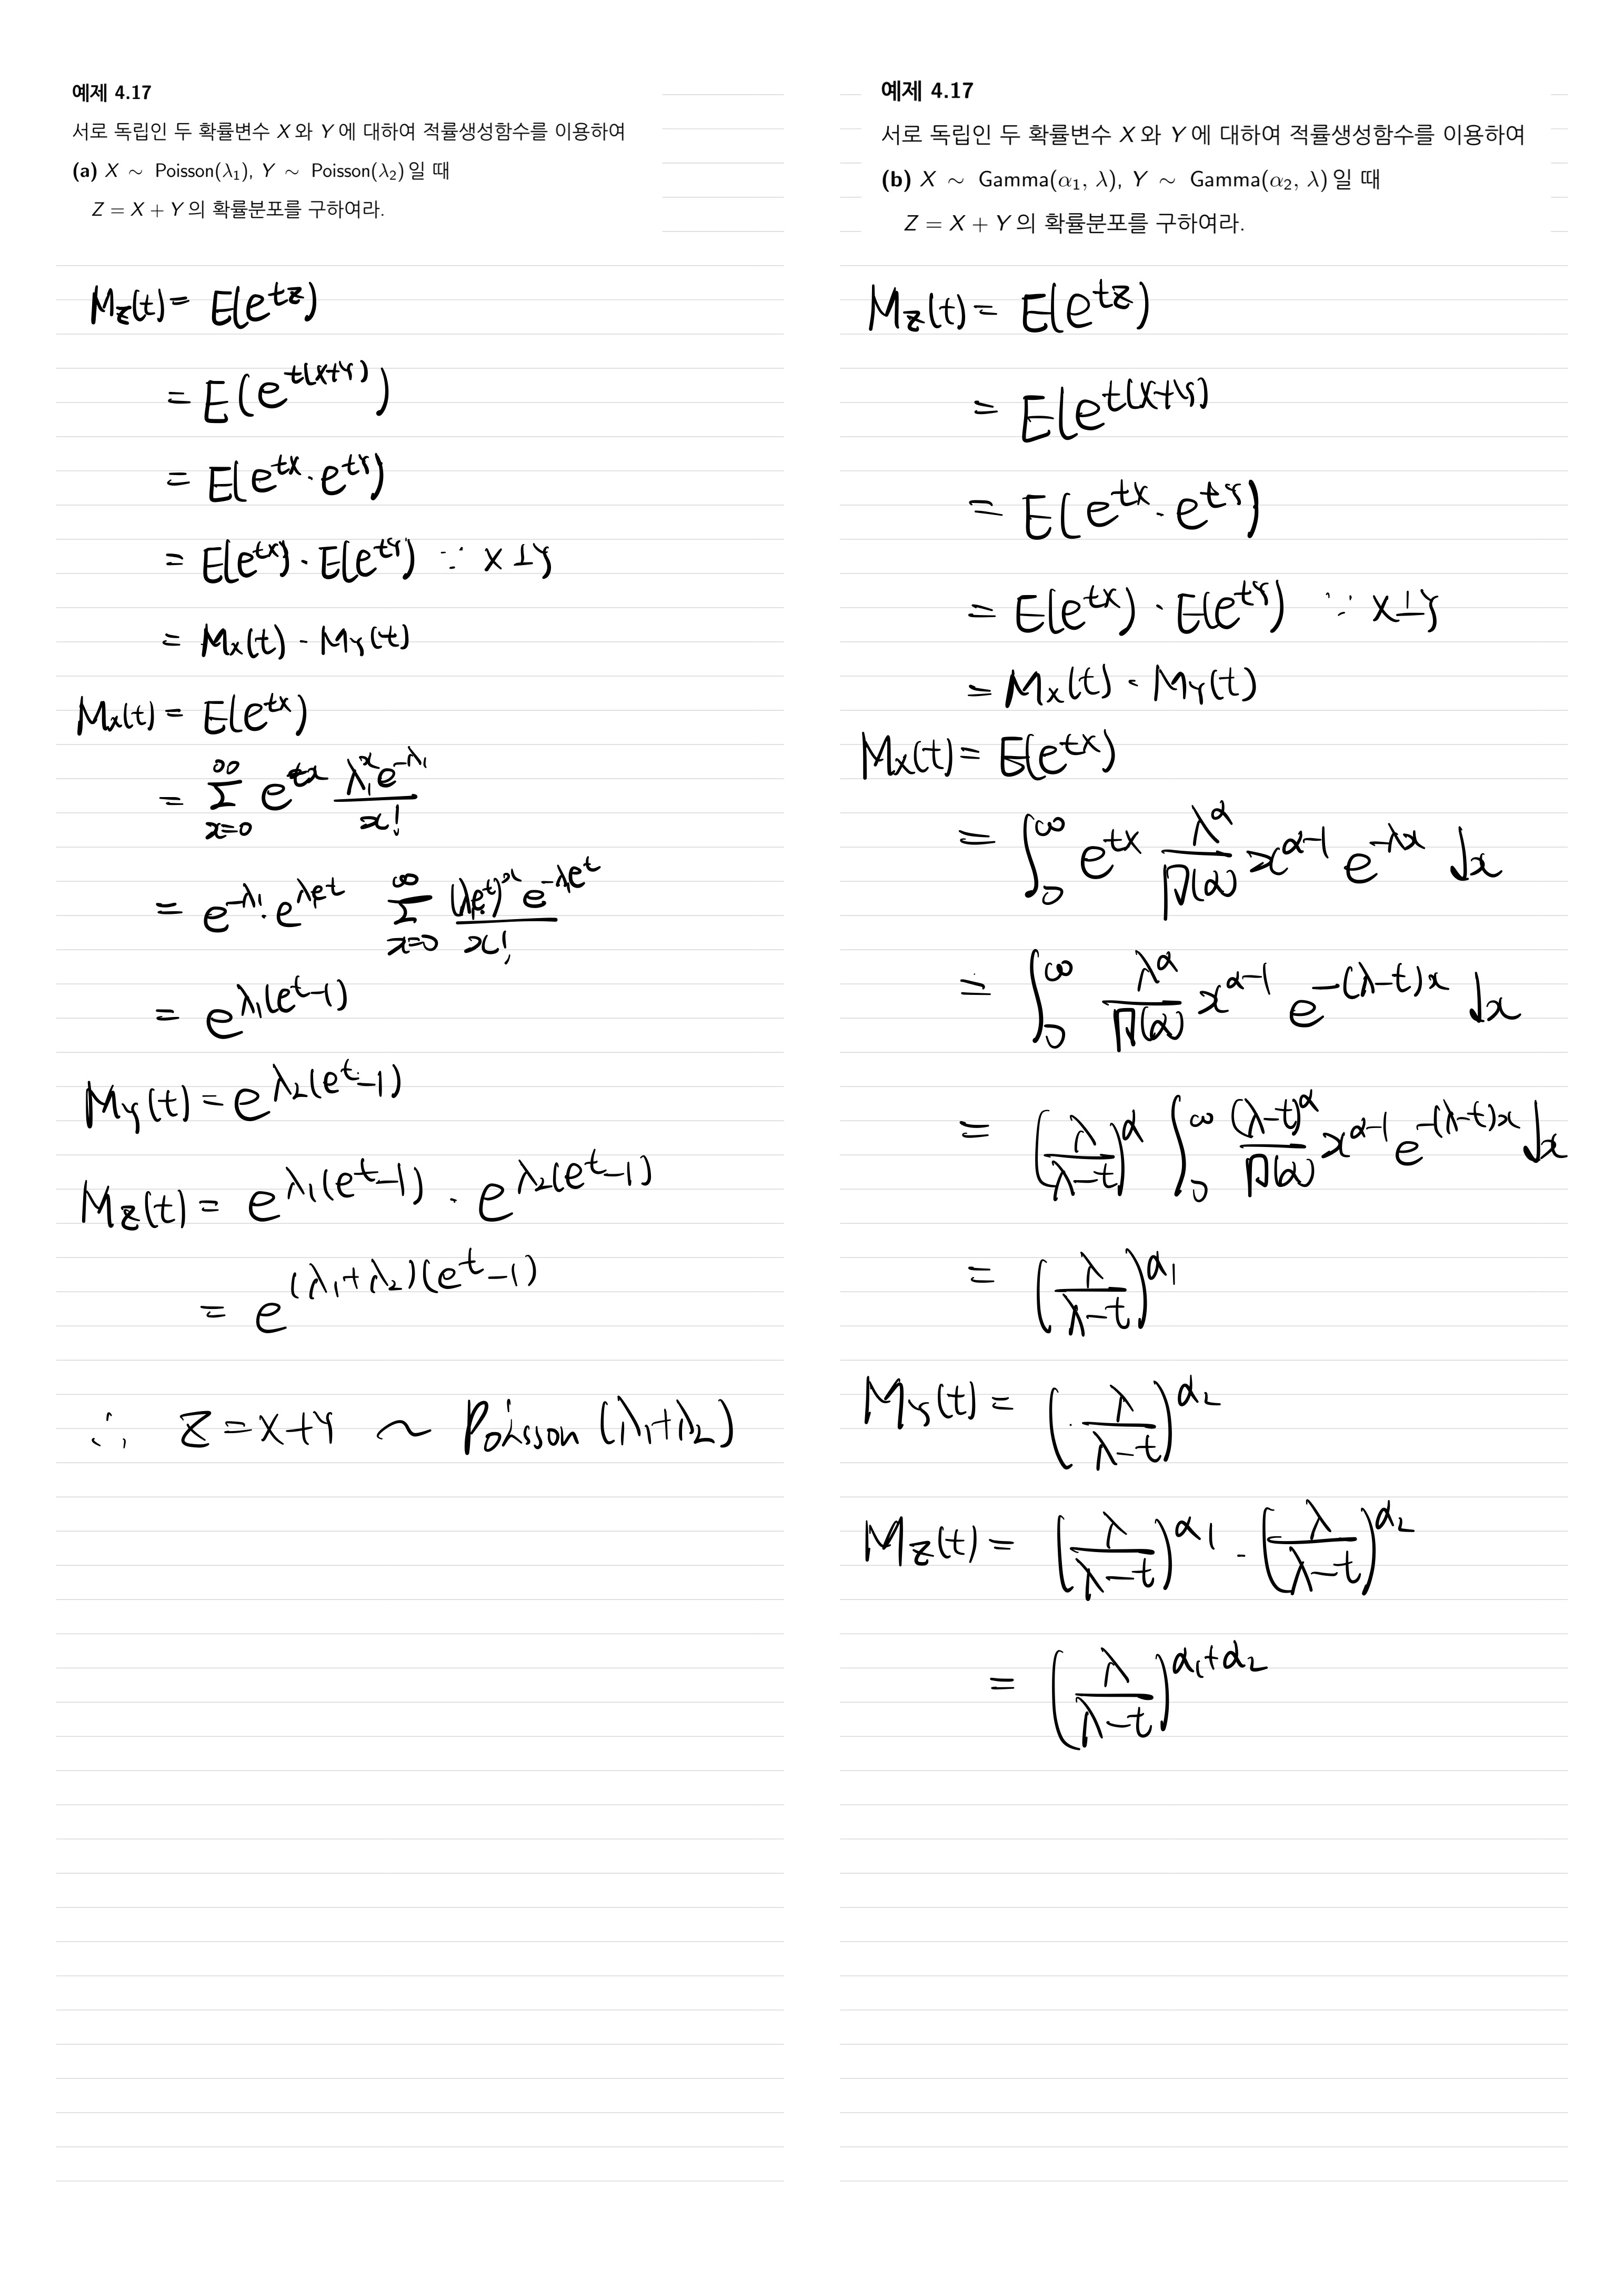 예제 4.17
서로 독립인 두 확률변수 X 와 Y 에 대하여 적률생성함수를 이용하여
(a) X ∼ Poisson(λ₁), Y ∼ Poisson(λ₂) 일 때
Z = X + Y 의 확률분포를 구하여라.
M_Z(t) = E(e^{tZ})
= E(e^{t(X+Y)})
= E(e^{tX} · e^{tY})
= E(e^{tX}) · E(e^{tY}) ∵ X⊥Y
= M_X(t) · M_Y(t)
M_X(t) = E(e^{tX})
= ∑_{x=0}^{∞} e^{tx} \frac{λ₁^x e^{-λ₁}}{x!}
= e^{-λ₁} · e^{λ₁e^t} ∑_{x=0}^{∞} \frac{(λ₁e^t)^x e^{-λ₁e^t}}{x!}
= e^{λ₁(e^t-1)}
M_Y(t) = e^{λ₂(e^t-1)}
M_Z(t) = e^{λ₁(e^t-1)} · e^{λ₂(e^t-1)}
= e^{(λ₁+λ₂)(e^t-1)}
∴ Z = X+Y ∼ Poisson (λ₁+λ₂)
예제 4.17
서로 독립인 두 확률변수 X 와 Y 에 대하여 적률생성함수를 이용하여
(b) X ∼ Gamma(α₁, λ), Y ∼ Gamma(α₂, λ) 일 때
Z = X + Y 의 확률분포를 구하여라.
M_Z(t) = E(e^{tZ})
= E(e^{t(X+Y)}
= E(e^{tX} · e^{tY})
= E(e^{tX}) · E(e^{tY}) ∵ X⊥Y
= M_X(t) · M_Y(t)
M_X(t) = E(e^{tX})
= ∫_0^∞ e^{tx} \frac{λ^α}{Γ(α)} x^{α-1} e^{-λx} dx
= ∫_0^∞ \frac{λ^α}{Γ(α)} x^{α-1} e^{-(λ-t)x} dx
= (\frac{λ}{λ-t})^α ∫_0^∞ \frac{(λ-t)^α}{Γ(α)} x^{α-1} e^{-(λ-t)x} dx
= (\frac{λ}{λ-t})^{α₁}
M_Y(t) = (\frac{λ}{λ-t})^{α₂}
M_Z(t) = (\frac{λ}{λ-t})^{α₁} · (\frac{λ}{λ-t})^{α₂}
= (\frac{λ}{λ-t})^{α₁+α₂}